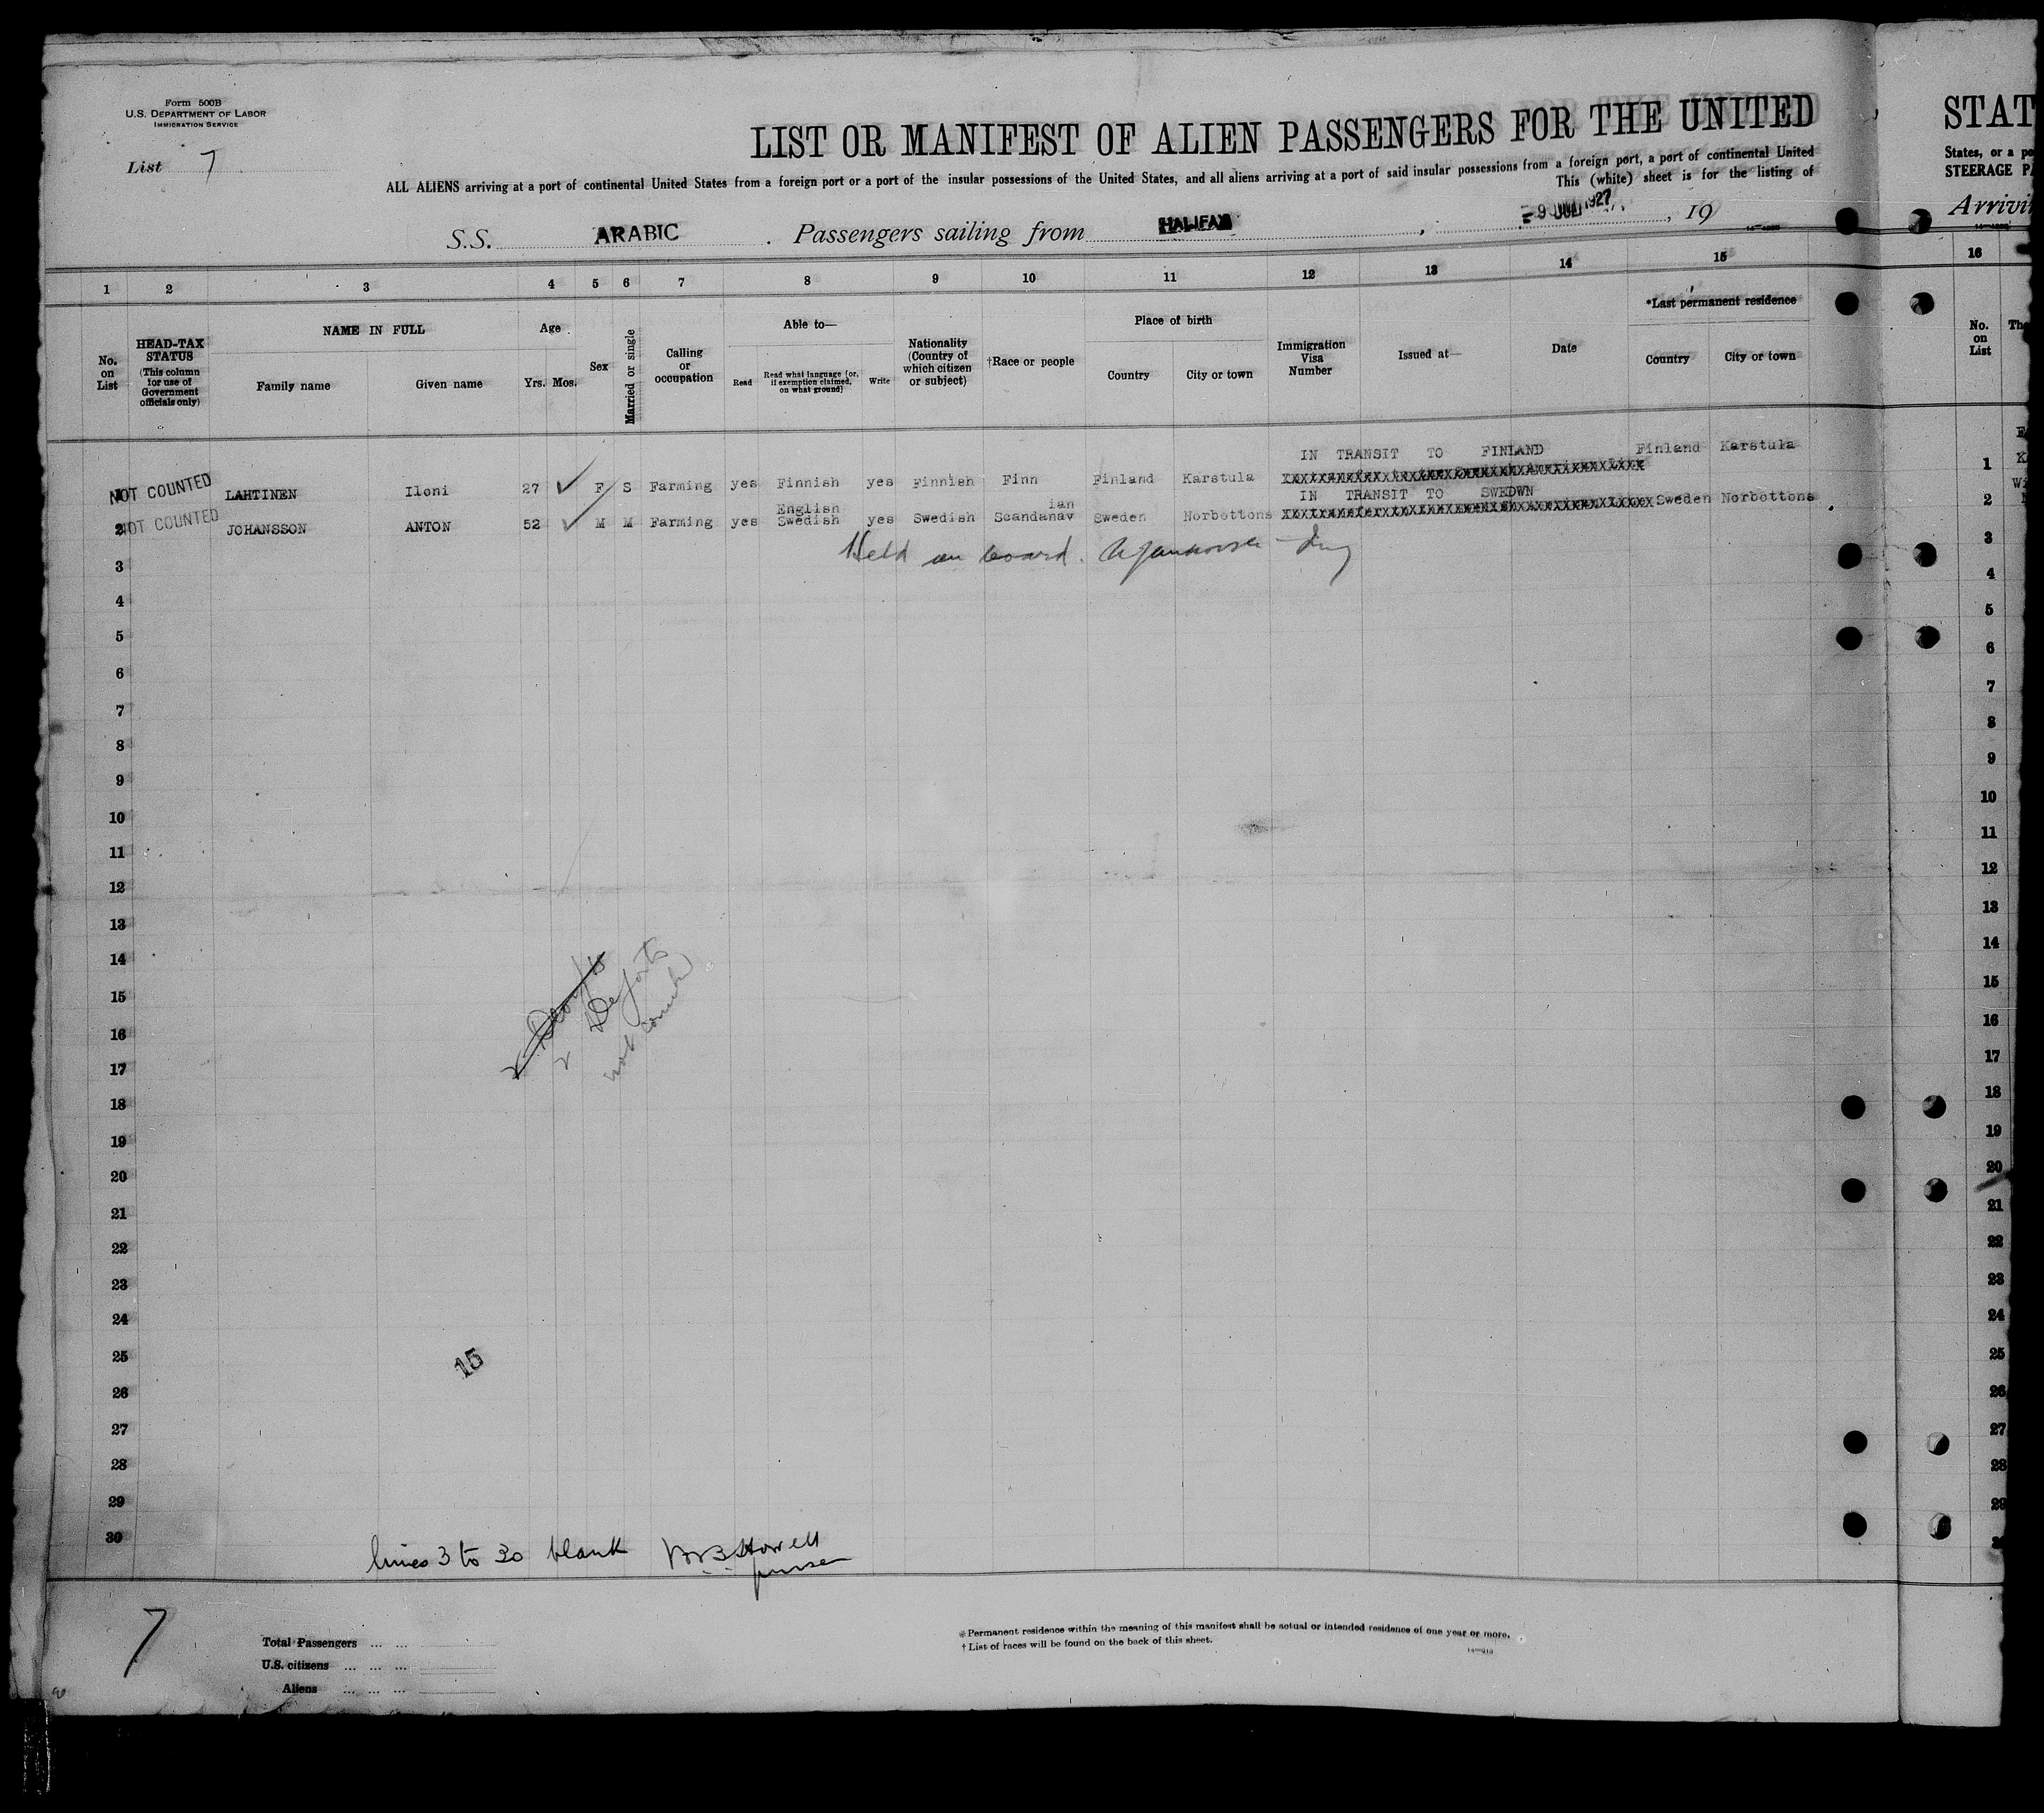 Form 500B
U.S. DEPARTMENT OF LABOR
IMMIGRATION SERVICE
List 7
LIST OR MANIFEST OF ALIEN PASSENGERS FOR THE UNITED
STAT
ALL ALIENS arriving at a port of continental United States from a foreign port or a port of the insular possessions of the United States, and all aliens arriving at a port of said insular possessions from a foreign port, a port of continental United
States, or a
This (white) sheet is for the listing of
STEERAGE
S.S. ARABIC . Passengers sailing from HALIFAX , 9 JUL 1927 , 19
Arrivin
1 2 3 4 5 6 7 8 9 10 11 12 13 14 15 16
No. on List
HEAD-TAX STATUS (This column for use of Government officials only)
NAME IN FULL
Family name Given name
Age
Yrs. Mos.
Sex
Married or single
Calling or occupation
Able to—
Read Read what language [or, if exemption claimed, on what ground] Write
Nationality (Country of which citizen or subject)
†Race or people
Place of birth
Country City or town
Immigration Visa Number
Issued at—
Date
*Last permanent residence
Country City or town
No. on List
IN TRANSIT TO FINLAND Finland Karstula
NOT COUNTED LAHTINEN Iloni 27 F S Farming yes Finnish yes Finnish Finn Finland Karstula 1
English ian IN TRANSIT TO SWEDWN
2 NOT COUNTED JOHANSSON ANTON 52 M M Farming yes Swedish yes Swedish Scandanav Sweden Norbottons Sweden Norbottons 2
Held on board.
3 3
4 4
5 5
6 6
7 7
8 8
9 9
10 10
11 11
12 12
13 13
14 14
15 15
16 16
17 17
18 18
19 19
20 20
21 21
22 22
23 23
24 24
25 25
26 26
27 27
28 28
29 29
30
2 Deports
not counted
15
lines 3 to 30 blank
purser
7
Total Passengers ... ...
U.S. citizens ... ... ...
Aliens ... ... ...
*Permanent residence within the meaning of this manifest shall be actual or intended residence of one year or more.
†List of races will be found on the back of this sheet.